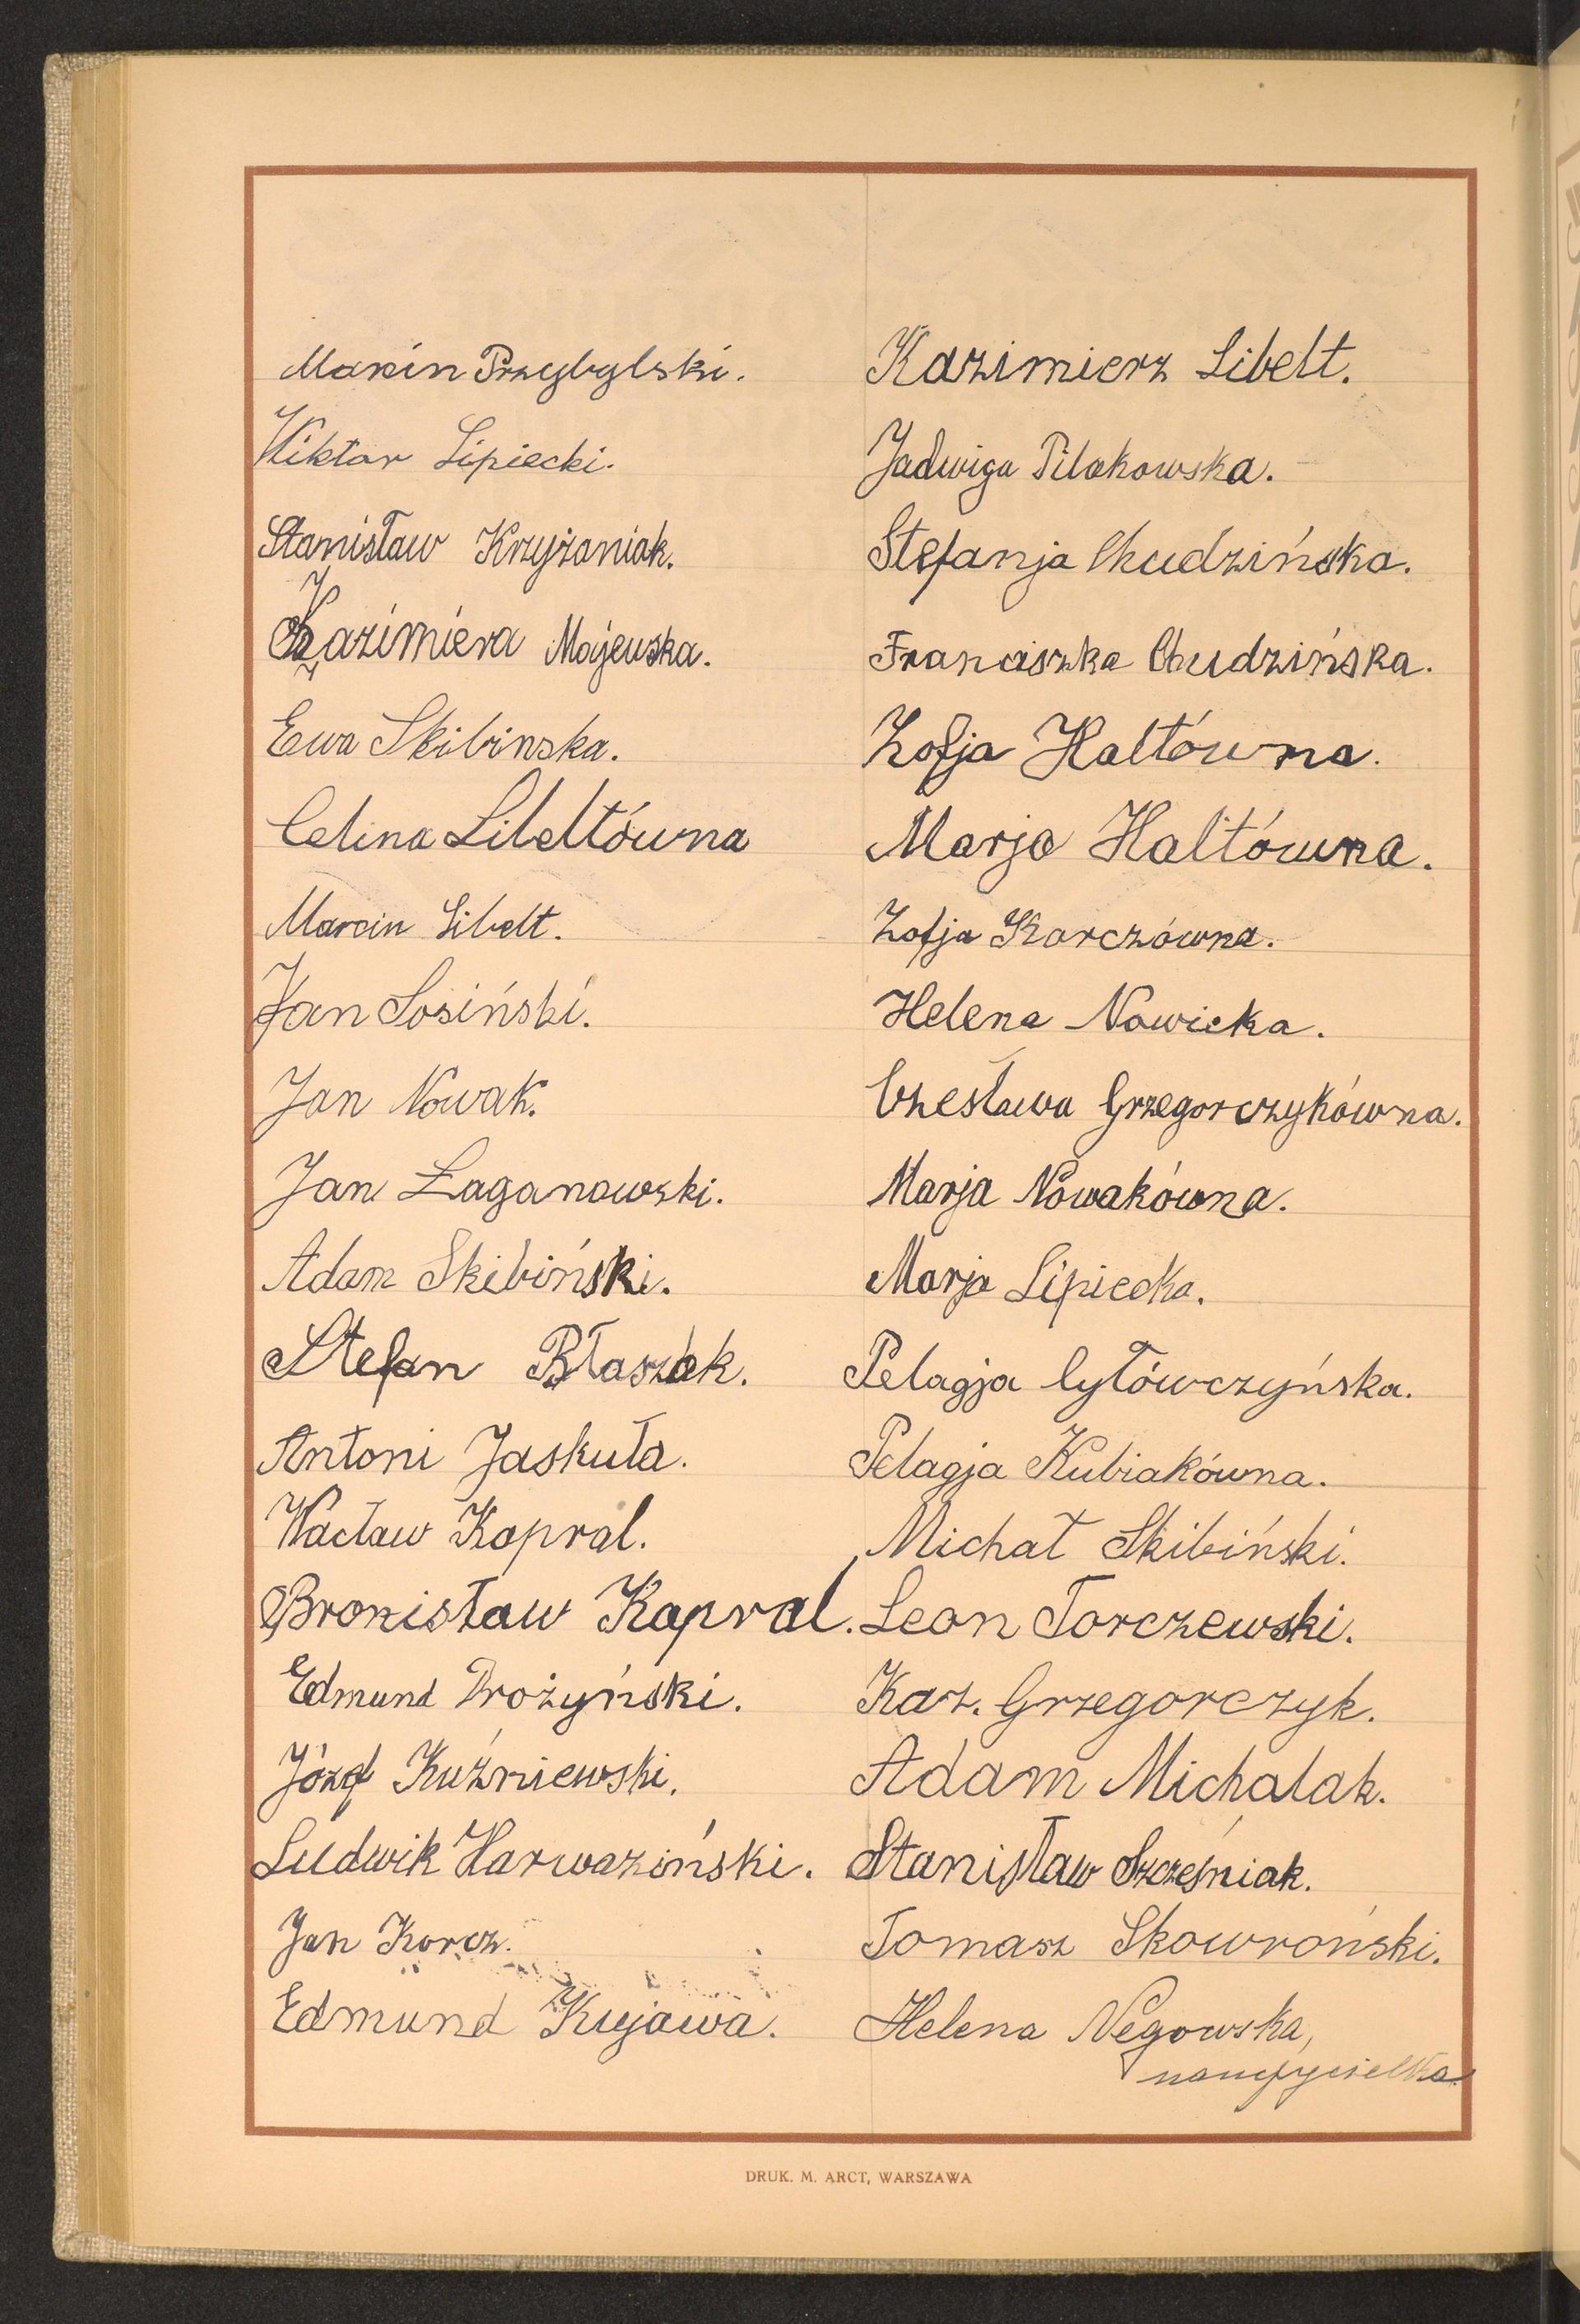 Marcin Przybylski.
Wiktor Lipiecki.
Stanisław Krzyżaniak.
Kazimiera Majewska.
Ewa Skibinska.
Celina Libeltówna
Marcin Libelt.
Jan Sosiński.
Jan Nowak.
Jan Łaganowski.
Adam Skibiński.
Stefan Błaszak.
Antoni Jaskuła.
Wacław Kapral.
Bronisław Kapral.
Edmund Drożyński.
Józef Kuźniewski.
Ludwik Harwaziński.
Jan Korcz.
Edmund Kujawa.
Kazimierz Libelt.
Jadwiga Pilakowska.
Stefanja Chudzińska.
Franciszka Chudzińska.
Zofja Haltówna.
Marja Haltówna.
Zofja Korczówna.
Helena Nowicka.
Czesława Grzegorczykówna.
Marja Nowakówna.
Marja Lipiecka.
Pelagja Cytówczyńska.
Pelagja Kubiakówna.
Michał Skibiński.
Leon Torczewski.
Kaz. Grzegorczyk.
Adam Michalak.
Stanisław Szcześniak.
Tomasz Skowroński.
Helena Negowska,
nauczycielka.
DRUK. M. ARCT, WARSZAWA